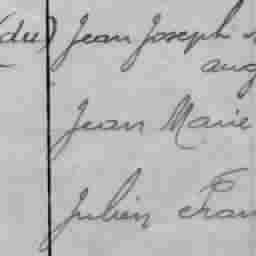 (du) Jean Joseph
aug
Jean Marie
Julien